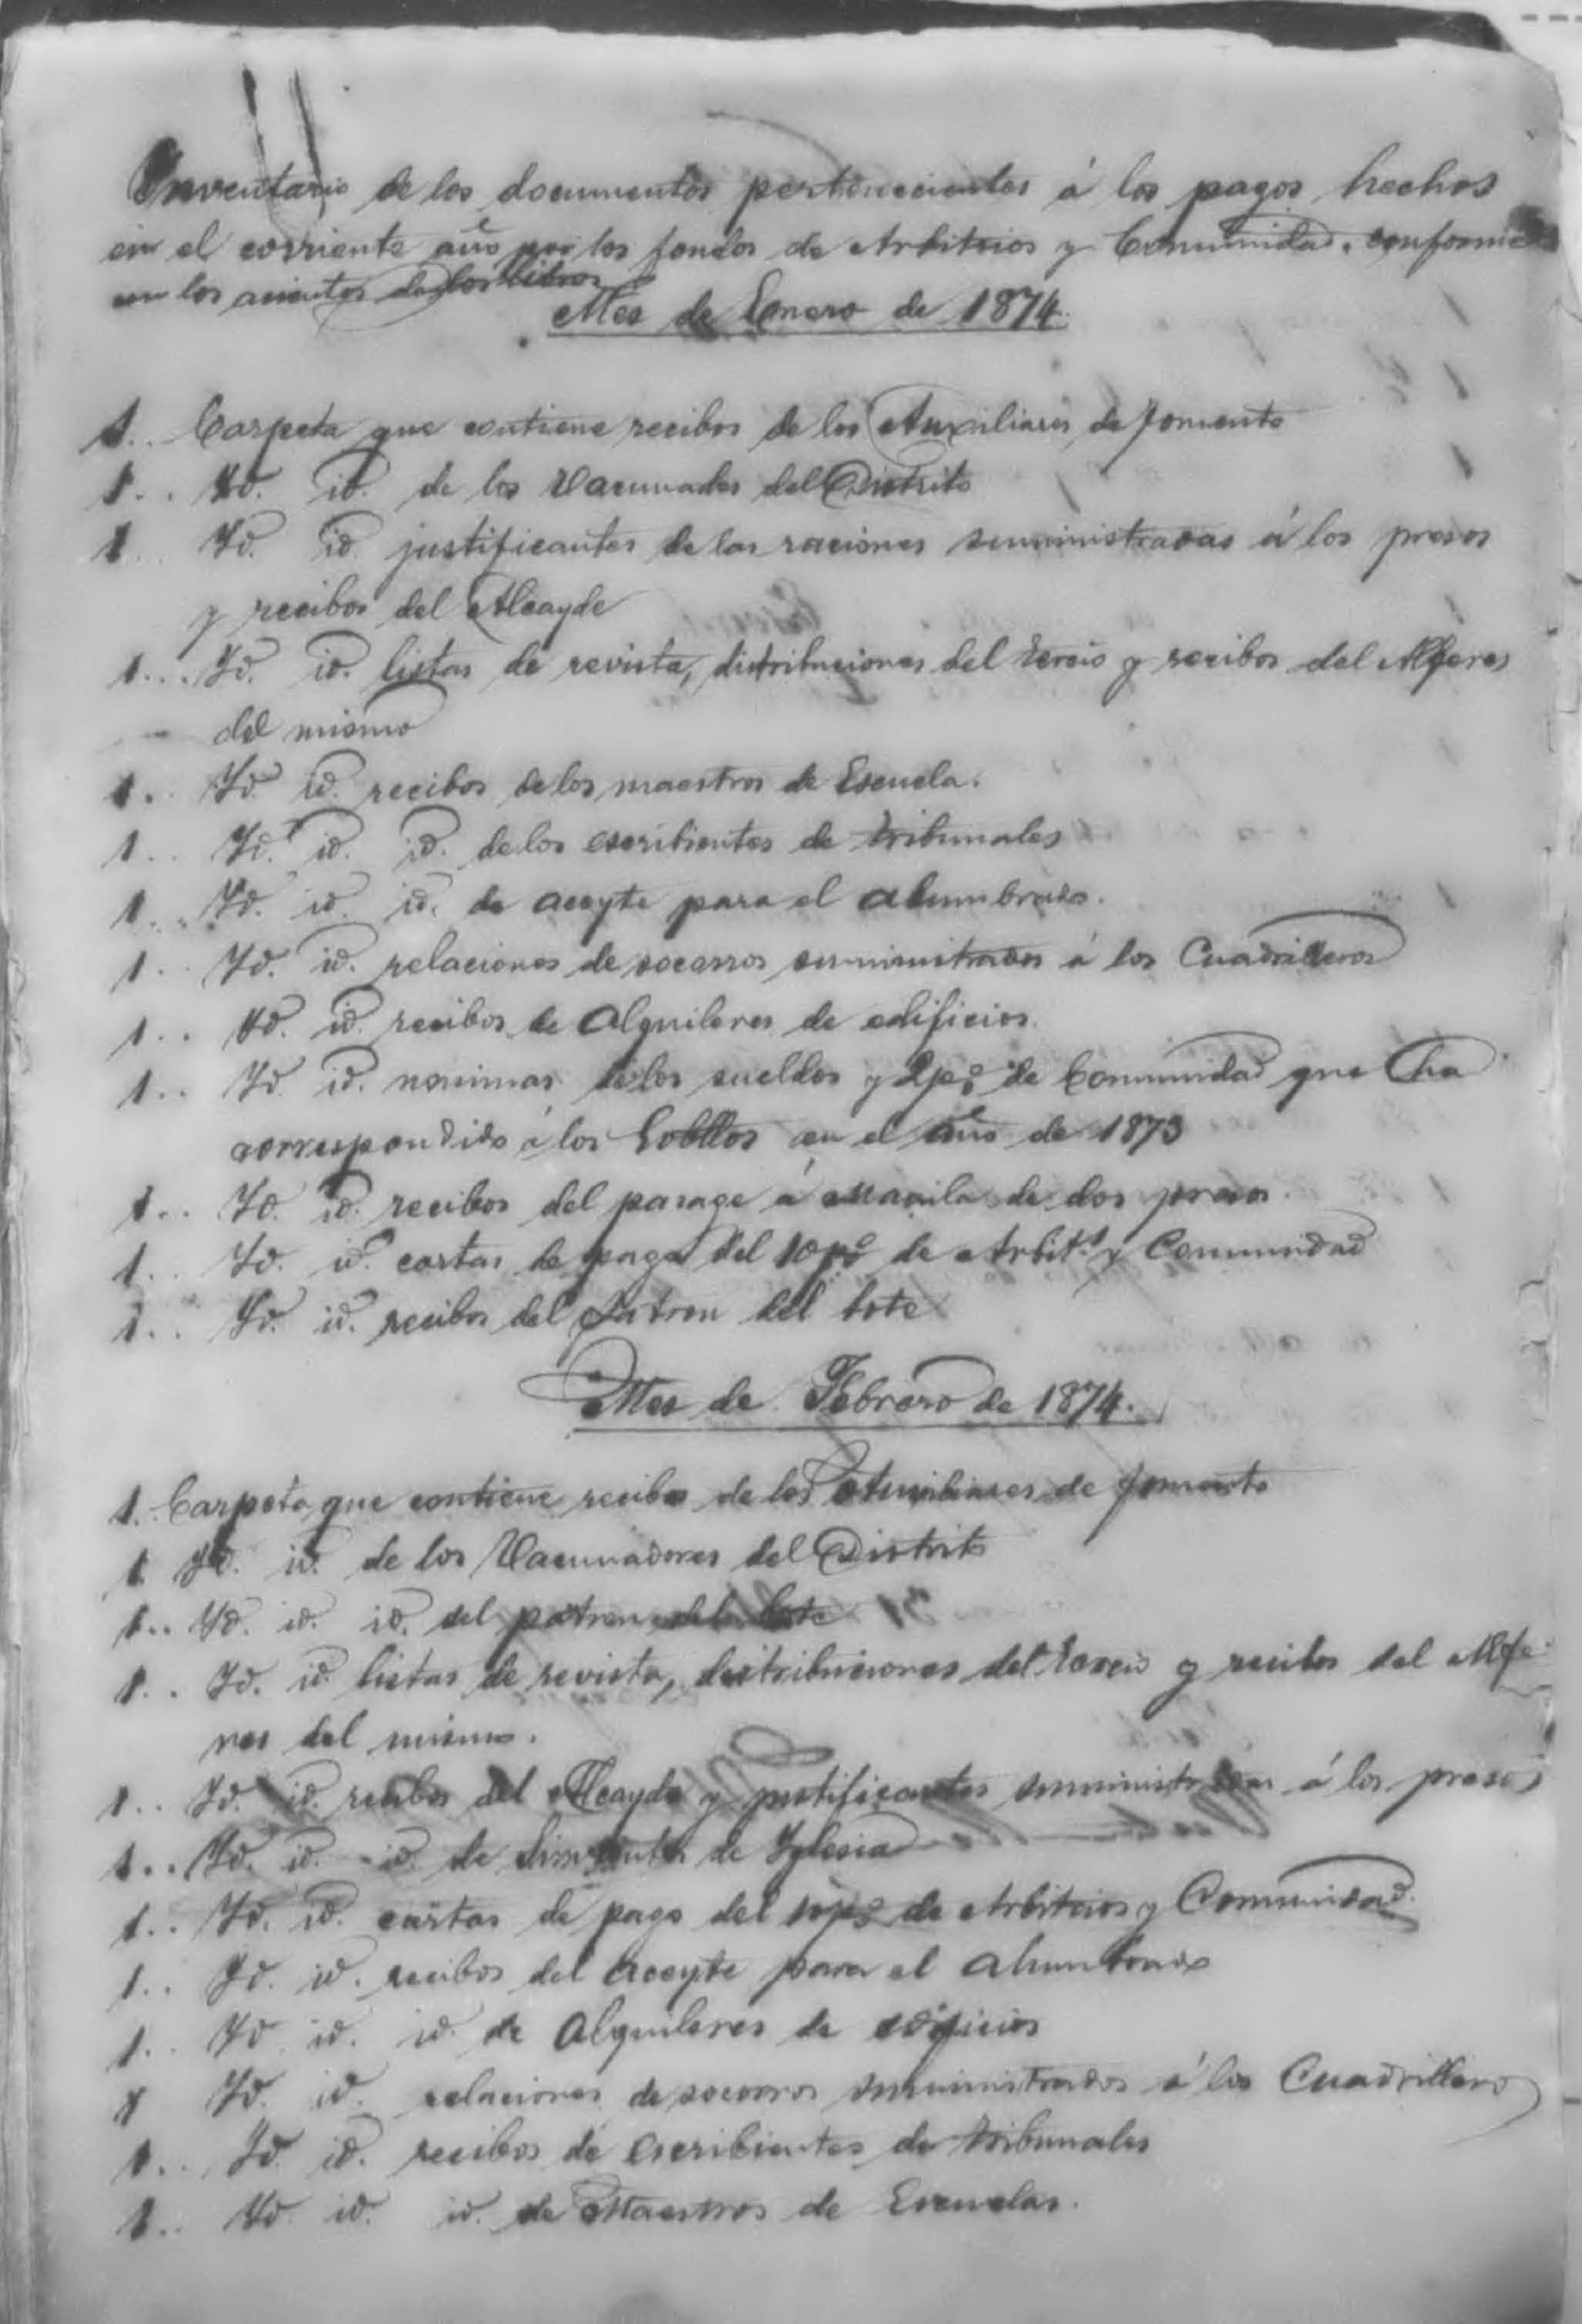 Inventario de los documentos pertenecientes á los pagos hechos
en el corriente año por los fondos de Arbitrios y Comunidad, conforme
con los asientos de los libros
Mes de Enero de 1874.
1.. Carpeta que contiene recibos de los Auxiliares de fomento
1.. Yd. id. de los Vacunador del Distrito
1.. Yd. id. justificantes de las raciones suministradas á los presos
y recibos del Alcayde
1... Yd. id. listas de revista, distribuciones del tercio y recibos del Alferes
del mismo
1.. Yd. id. recibos de los maestros de Escuela.
1.. Yd. id. id. de los escribientes de tribunales
1.. Yd. id. id. de aceyte para el alumbrado.
1.. Yd. id. relaciones de socorros suministrados á los Cuadrilleros
1.. Yd. id. recibos de Alquileres de edificios.
1.. Yd. id. nominas de los sueldos y 2 p% de Comunidad que ha
correspondido á los en el año de 1873
1.. Yd. id. recibos del pasage á Manila de dos presos.
1.. Yd. id. cartas de pago del 10 p% de Arbit.s y Comunidad
1.. Yd. id. recibos del Patron del bote
Mes de Febrero de 1874.
1.. Carpeta que contiene recibos de los Auxiliares de fomento
1 Yd. id. de los Vacunadores del Distrito
1.. Yd. id. id. del patron del bote
1.. Yd. id. listas de revista, distribuciones del tercio y recibos del Alfe-
res del mismo.
1.. Yd. id. recibos del Alcayde y justificantes suministradas á los presos
1.. Yd. id. id. de de Yglesia
1.. Yd. id. cartas de pago del 10 p% de Arbitrios y Comunidad.
1.. Yd. id. recibos del aceyte para el alumbrado
1.. Yd. id. id. de Alquileres de edificios
1 Yd. id. relaciones de socorros suministrados á los Cuadrilleros
1.. Yd. id. recibos de escribientes de tribunales
1.. Yd. id. id. de Maestros de Escuelas.